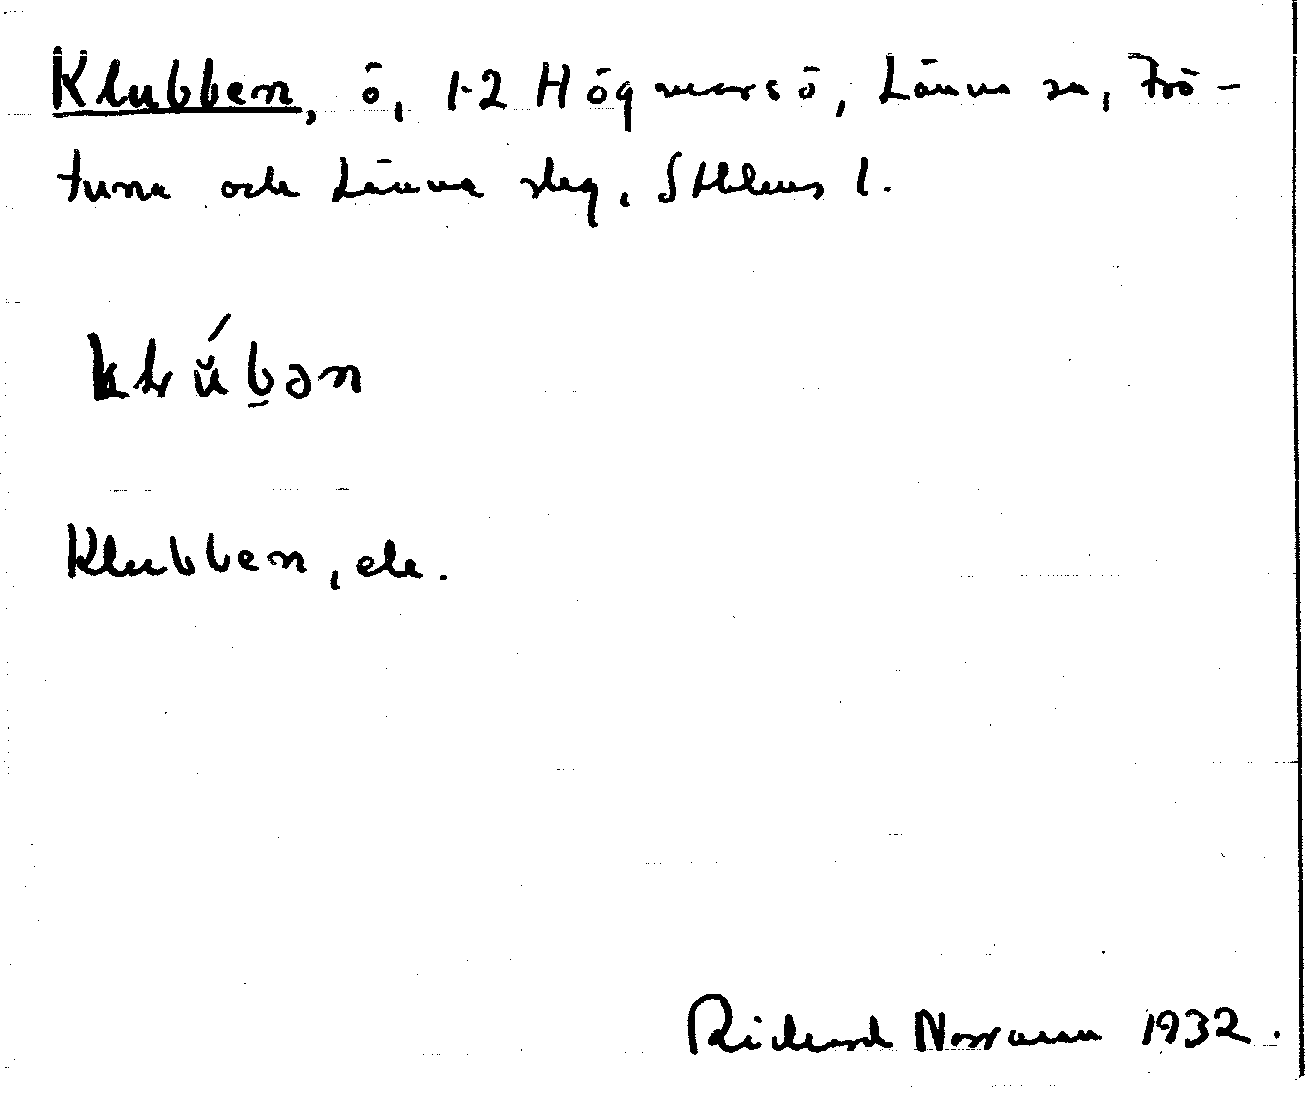 Klubben, ö, 1-2 Högmarsö, Länna sn, Frö-
tuna och Länna slg, Sthlms l.
klŭ́b̠ən
Klubben, ek.
Richard Norrman 1932.